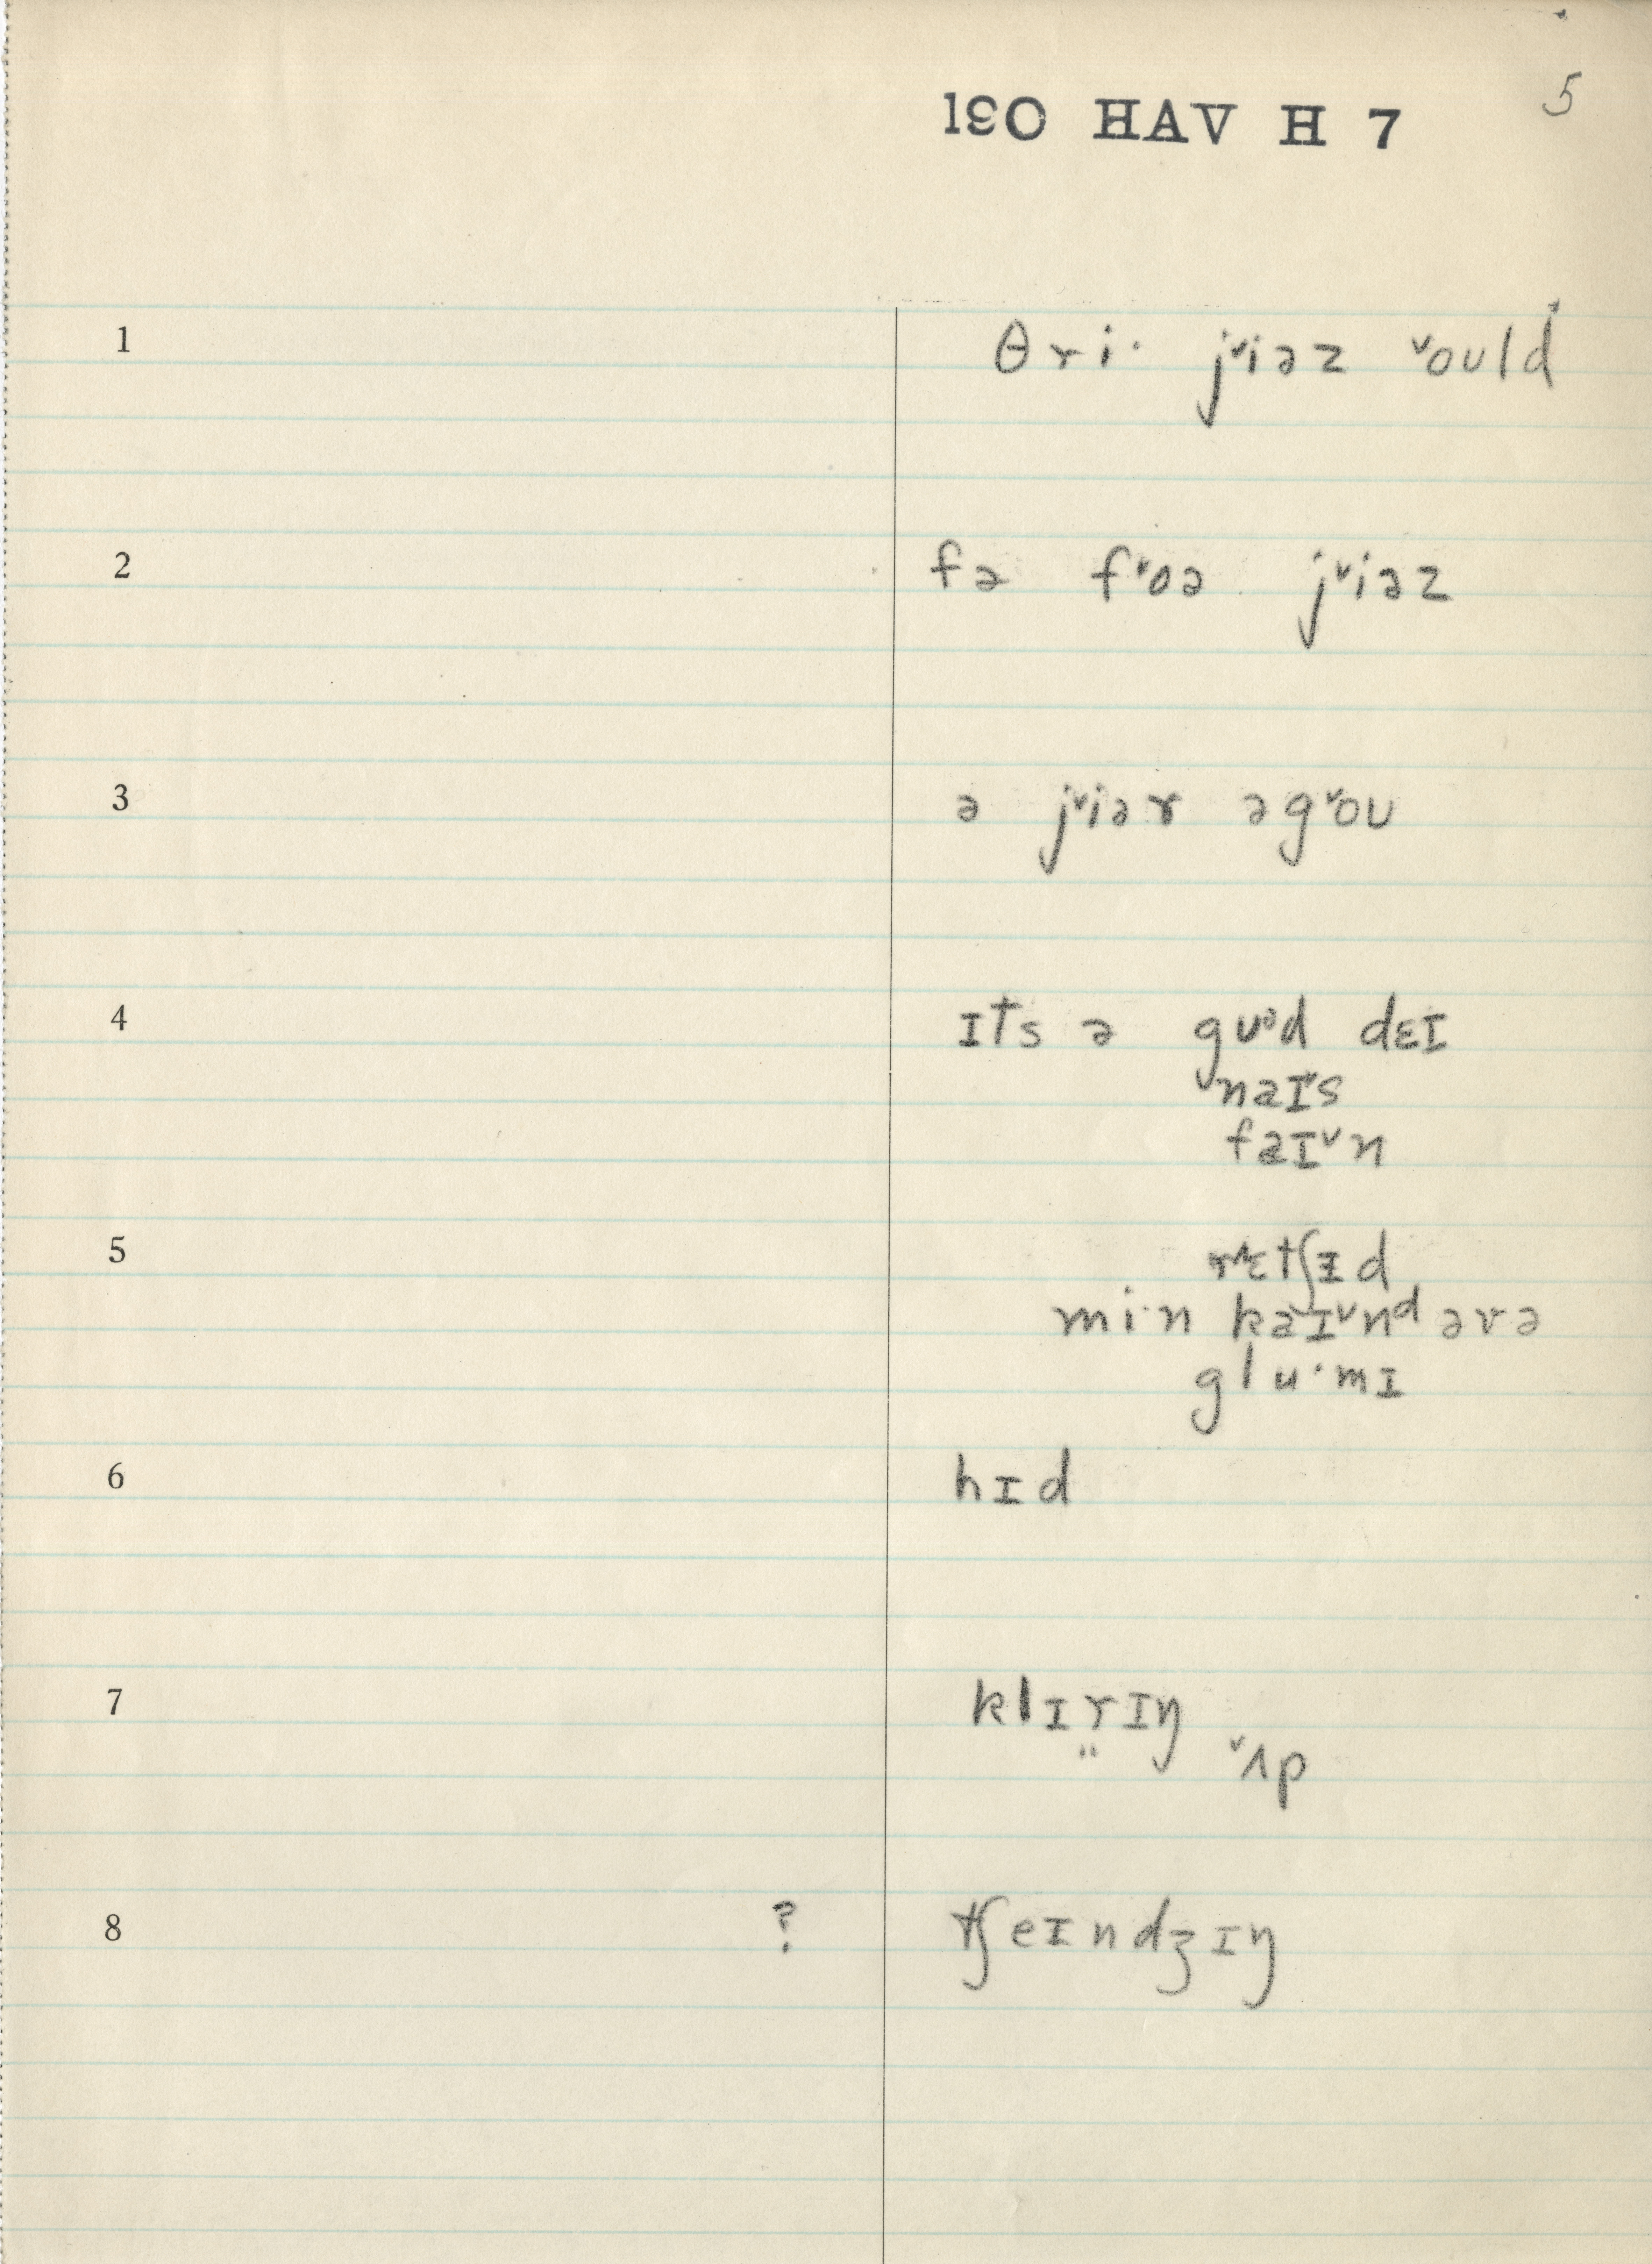 1ƐO HAV H 7 5
1 θri· j˅iəz ˅oʊld
2 fə f˅oə j˅iəz
3 ə j˅iər əg˅oʊ
4 ɪts ə gʊᵊd dɛɪ
naɪ˅s
faɪ˅n
5 rɛtʃɪd
mi·n kaɪ˅nᵈ əvə
glu·mɪ
6 hɪd
7 klɪr̤ɪŋ
˅ʌp
8 ? tʃeɪndʒɪŋ